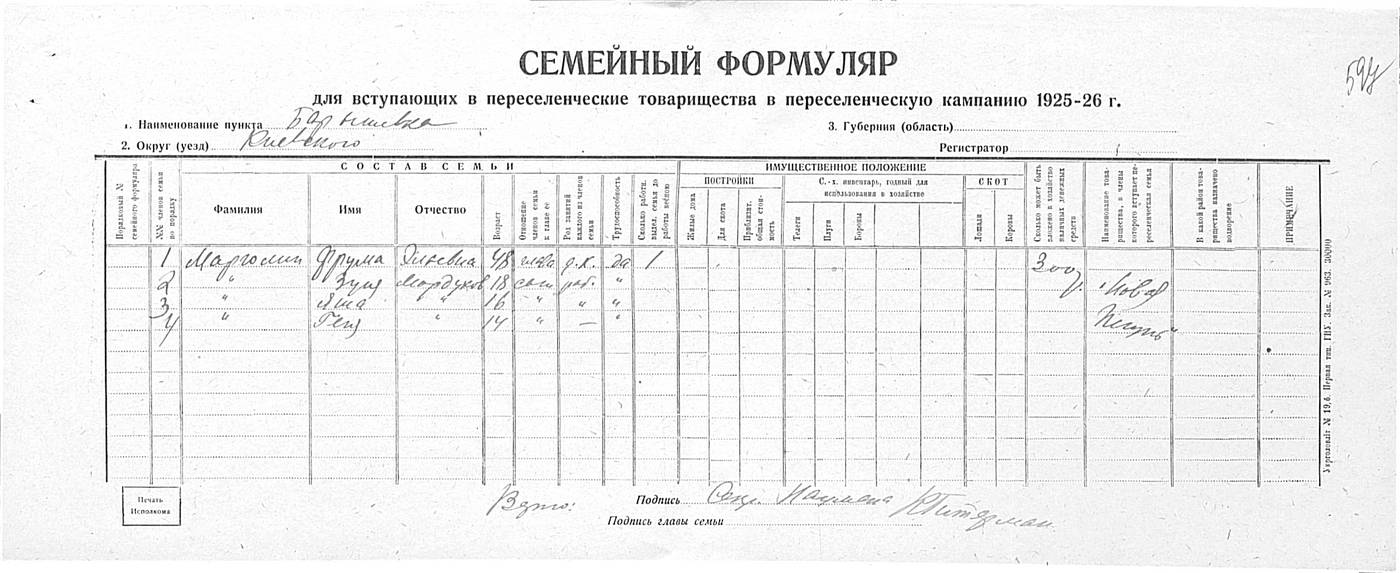 СЕМЕЙНЫЙ ФОРМУЛЯР
для вступающих в переселенческие товарищества в переселенческую кампанию 1925-26 г.
1. Наименование пункта Барышевка
3. Губерния (область)
2. Округ (уезд) Киевского
Регистратор
Порядковый № семейного формуляра
№№ членов семьи по порядку
СОСТАВ СЕМЬИ
Фамилия
Имя
Отчество
Возраст
Отношение членов семьи к главе ее
Род занятий каждого из членов семьи
Трудоспособность
Сколько работн. выдел. семья до работы весною
ИМУЩЕСТВЕННОЕ ПОЛОЖЕНИЕ
ПОСТРОЙКИ
Жилые дома
Для скота
Приблизит. общая стоимость
С.-х. инвентарь, годный для использования в хозяйстве
Телеги
Плуги
Бороны
СКОТ
Лошади
Коровы
Сколько может быть вложено в хозяйство наличных денежных средств
Наименование товарищества, в члены которого вступает переселенческая семья
В какой район товарищества назначено водворение
ПРИМЕЧАНИЕ
1 Марголин Фрума Эльевна 48 глава д.х. да 1 300 р.
2 " Зуся Мордухов 18 сын раб. " "Новый
3 " Яша " 16 " " "
4 " Геня " 14 " — "
Печать Исполкома
Верно:
Подпись Секр. Нацмена К Питерман
Подпись главы семьи
Укрголовліт № 19,6. Первая тип. ГИУ. Зак. № 963. 30000